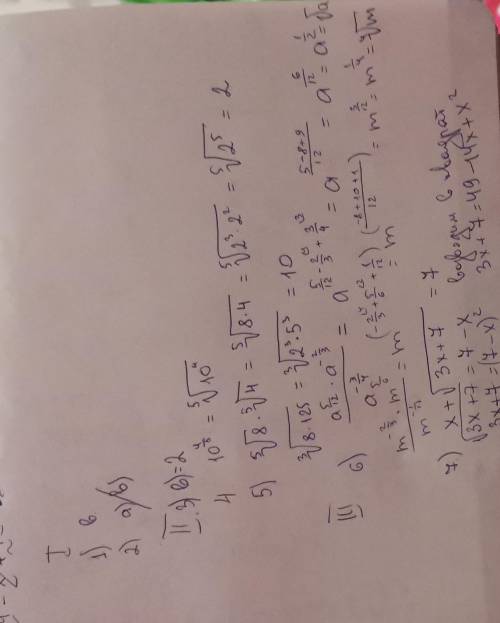 I
1) в
2) а)
II. 3) в) = 2
4 10^{4/5} = \sqrt[5]{10^4}
5) \sqrt[5]{8} \cdot \sqrt[5]{4} = \sqrt[5]{8 \cdot 4} = \sqrt[5]{2^3 \cdot 2^2} = \sqrt[5]{2^5} = 2
\sqrt[3]{8 \cdot 125} = \sqrt[3]{2^3 \cdot 5^3} = 10
III 6) \frac{a^{\frac{5}{12}} \cdot a^{-\frac{2}{3}}}{a^{-\frac{3}{4}}} = a^{\frac{5}{12} - \frac{2}{3} + \frac{3}{4}} = a^{\frac{5-8+9}{12}} = a^{\frac{6}{12}} = a^{\frac{1}{2}} = \sqrt{a}
\frac{m^{-\frac{2}{3}} \cdot m^{\frac{5}{6}}}{m^{-\frac{1}{12}}} = m^{(-\frac{2}{3} + \frac{5}{6} + \frac{1}{12})} = m^{(\frac{-8+10+1}{12})} = m^{\frac{3}{12}} = m^{\frac{1}{4}} = \sqrt[4]{m}
7) x + \sqrt{3x+7} = 7
\sqrt{3x+7} = 7 - x возводим в квадрат
3x+7 = (7-x)^2 3x+7 = 49 - 14x + x^2